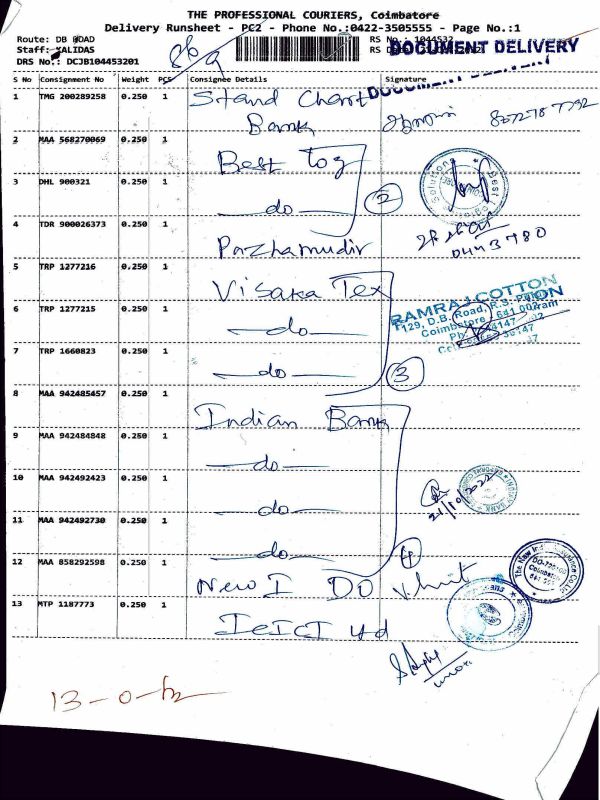 THE PROFESSIONAL COURIERS, Coimbatore
Delivery Runsheet - PC2 - Phone No.:0422-3505555 - Page No.:1
Route: DB ROAD
RS No.: 1044532
Staff: KALIDAS
DOCUMENT DELIVERY
DRS No.: DCJB104453201
S No Consignment No Weight PCS Consignee Details Signature
1 TMG 200289258 0.250 1 Stand Chart
Bank
2 MAA 568270069 0.250 1 Best log
3 DHL 900321 0.250 1 do
2
4 TDR 900026373 0.250 1 Pazhamudir
5 TRP 1277216 0.250 1 Visaka Tex
RAMRAJ COTTON
6 TRP 1277215 0.250 1 do
Coimbatore
7 TRP 1660823 0.250 1 do
3
8 MAA 942485457 0.250 1 Indian Bank
9 MAA 942484848 0.250 1 do
10 MAA 942492423 0.250 1 do
21/10/2022
11 MAA 942492730 0.250 1 do
4
12 MAA 858292598 0.250 1 New I DO
13 MTP 1187773 0.250 1 ICICI
13-0-